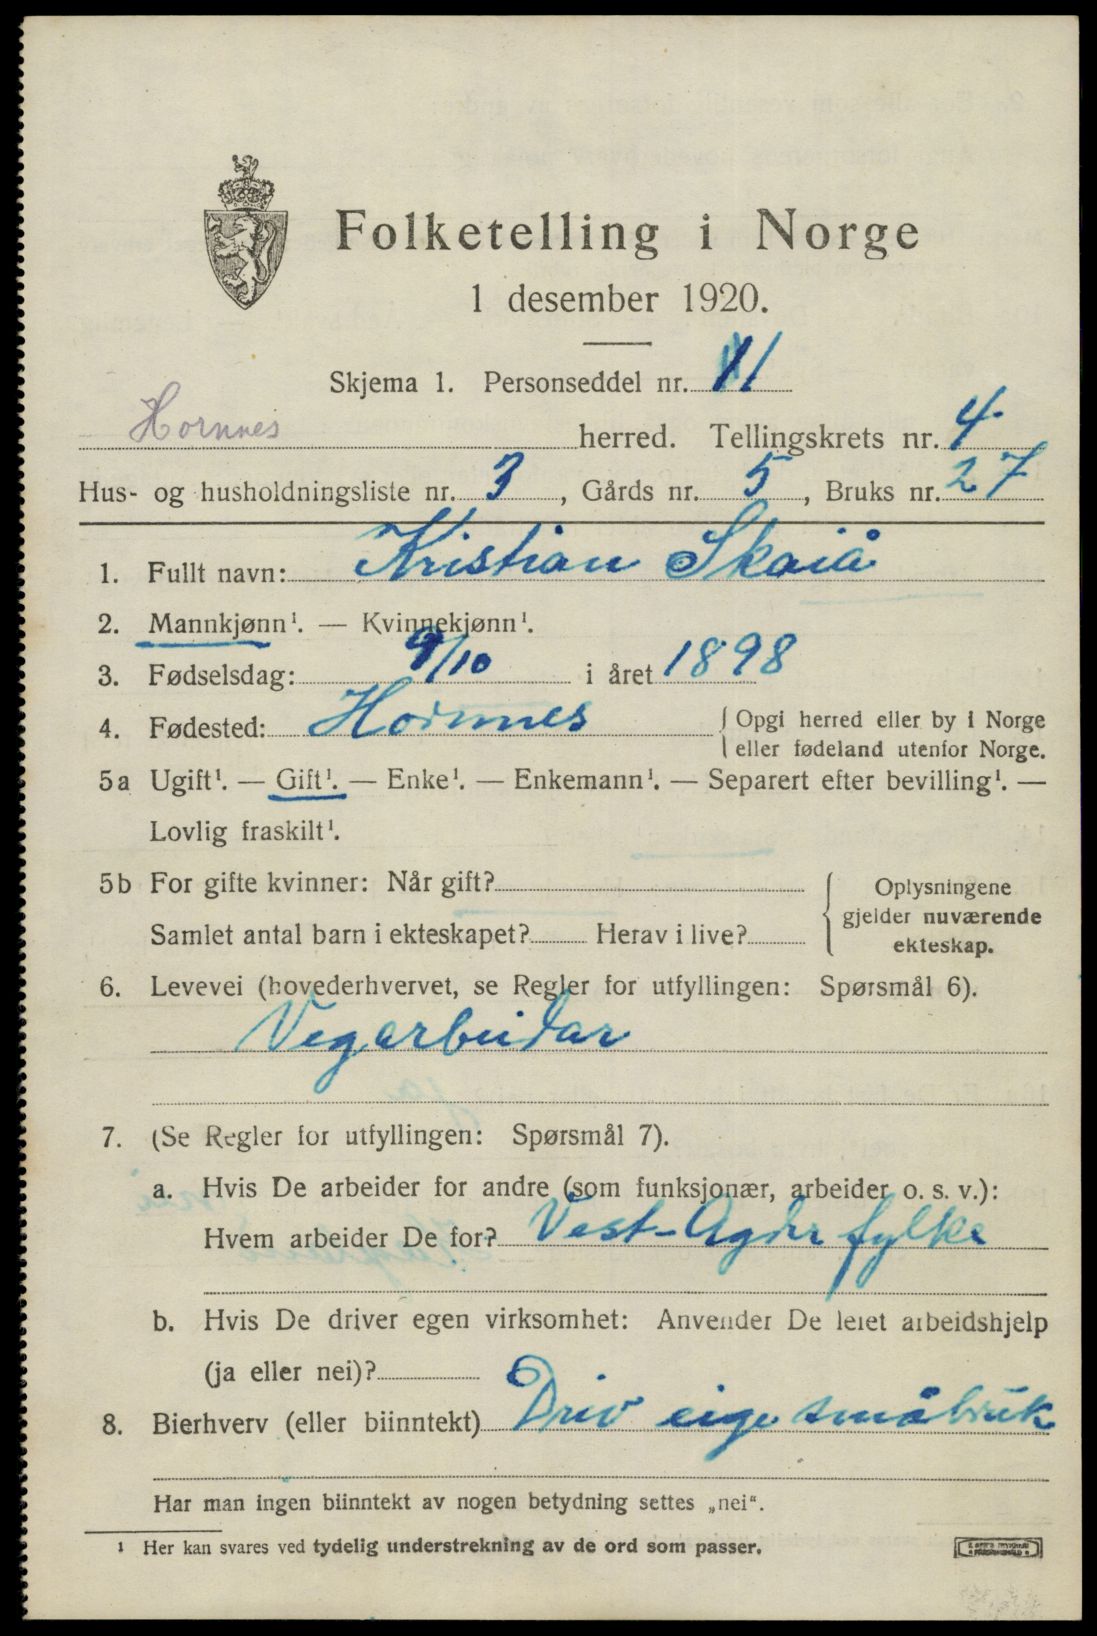 Folketelling i Norge
1 desember 1920.
Skjema 1. Personseddel nr. 11
Hornnes herred. Tellingskrets nr. 4
Hus- og husholdningsliste nr. 3, Gårds nr. 5, Bruks nr. 27
1. Fullt navn: Kristian Skaiå
2. Mannkjønn¹. — Kvinnekjønn¹.
3. Fødselsdag: 9/10 i året 1898
4. Fødested: Hornnes { Opgi herred eller by i Norge
eller fødeland utenfor Norge.
5a Ugift¹. — Gift¹. — Enke¹. — Enkemann¹. — Separert efter bevilling¹. —
Lovlig fraskilt¹.
5b For gifte kvinner: Når gift?
Samlet antal barn i ekteskapet? Herav i live?
{ Oplysningene
gjelder nuværende
ekteskap.
6. Levevei (hovederhvervet, se Regler for utfyllingen: Spørsmål 6).
Vegarbeidar
7. (Se Regler for utfyllingen: Spørsmål 7).
a. Hvis De arbeider for andre (som funksjonær, arbeider o. s. v.):
Hvem arbeider De for? Vest-Agder fylke
b. Hvis De driver egen virksomhet: Anvender De leiet arbeidshjelp
(ja eller nei)?
8. Bierhverv (eller biinntekt) Driv eige småbruk
Har man ingen biinntekt av nogen betydning settes „nei“.
¹ Her kan svares ved tydelig understrekning av de ord som passer.